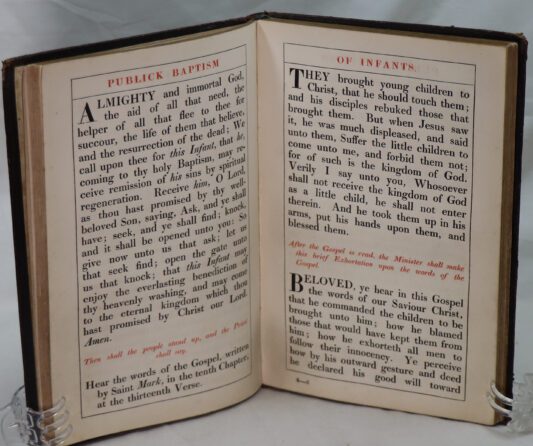 PUBLICK BAPTISM
ALMIGHTY and immortal God,
the aid of all that need, the
helper of all that flee to thee for
succour, the life of them that believe,
and the resurrection of the dead; We
call upon thee for this Infant, that he,
coming to thy holy Baptism, may re-
ceive remission of his sins by spiritual
regeneration. Receive him, O Lord,
as thou hast promised by thy well-
beloved Son, saying, Ask, and ye shall
have; seek, and ye shall find; knock,
and it shall be opened unto you: So
give now unto us that ask; let us
that seek find; open the gate unto
us that knock; that this Infant may
enjoy the everlasting benediction of
thy heavenly washing, and may come
to the eternal kingdom which thou
hast promised by Christ our Lord.
Amen.
Then shall the people stand up, and the Priest
shall say,
Hear the words of the Gospel, written
by Saint Mark, in the tenth Chapter,
at the thirteenth Verse.
OF INFANTS
THEY brought young children to
Christ, that he should touch them;
and his disciples rebuked those that
brought them. But when Jesus saw
it, he was much displeased, and said
unto them, Suffer the little children to
come unto me, and forbid them not;
for of such is the kingdom of God.
Verily I say unto you, Whosoever
shall not receive the kingdom of God
as a little child, he shall not enter
therein. And he took them up in his
arms, put his hands upon them, and
blessed them.
After the Gospel is read, the Minister shall make
this brief Exhortation upon the words of the
Gospel.
BELOVED, ye hear in this Gospel
the words of our Saviour Christ,
that he commanded the children to be
brought unto him; how he blamed
those that would have kept them from
him; how he exhorteth all men to
follow their innocency. Ye perceive
how by his outward gesture and deed
he declared his good will toward